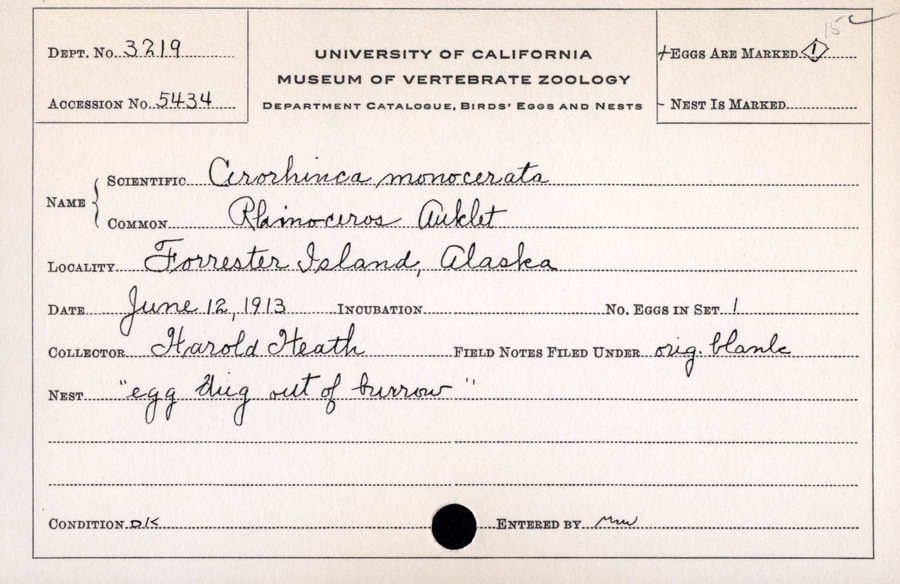 15c
Dept. No. 3219
UNIVERSITY OF CALIFORNIA
+Eggs Are Marked 1
MUSEUM OF VERTEBRATE ZOOLOGY
Accession No. 5434
Department Catalogue, Birds' Eggs and Nests
- Nest Is Marked
Name
Scientific Cerorhinca monocerata
Common Rhinoceros Auklet
Locality Forrester Island, Alaska
Date June 12, 1913 Incubation No. Eggs in Set 1
Collector Harold Heath Field Notes Filed Under orig. blank
Nest "egg dug out of burrow"
Condition OK Entered by